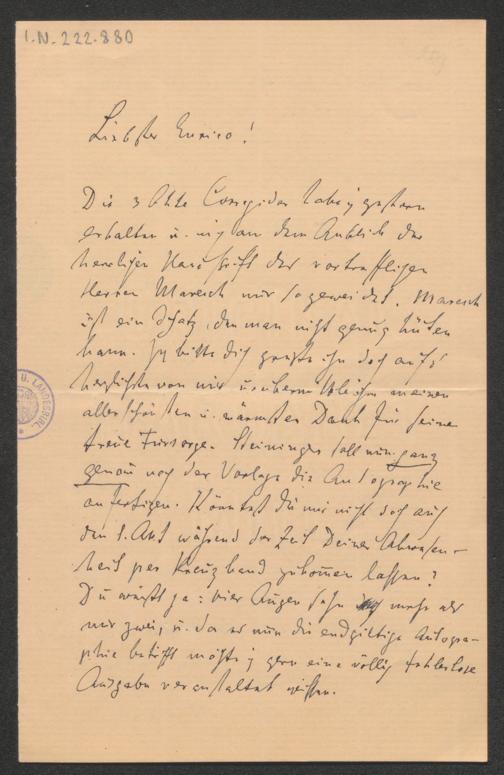 I.N. 222.880
Liebster Enrico!
Die 3 Akte Corregidor habe ich gestern
erhalten u. mich an dem Anblick der
herrlichen Handschrift des vortrefflichen
Herrn Maresch nur so geweidet. Maresch
ist ein Schatz, den man nicht genug hüten
kann. Ich bitte dich grüsse ihn doch aufs
herzlichste von mir u. übermittle ihm meinen
allerschönsten u. wärmsten Dank für seine
treue Fürsorge. Steininger soll nun ganz
genau nach der Vorlage die Autographie
anfertigen. Könntest du mir nicht doch auch
den 1. Akt während der Zeit Deiner Abwesen-
heit per Kreuzband zukommen lassen?
Du weisst ja: vier Augen sehn mehr als
nur zwei, u. da es nun die endgiltige Autogra-
phie betrifft möchte ich gern eine völlig fehlerlose
Ausgabe veranstaltet wissen.
U. LANDESBIBL.